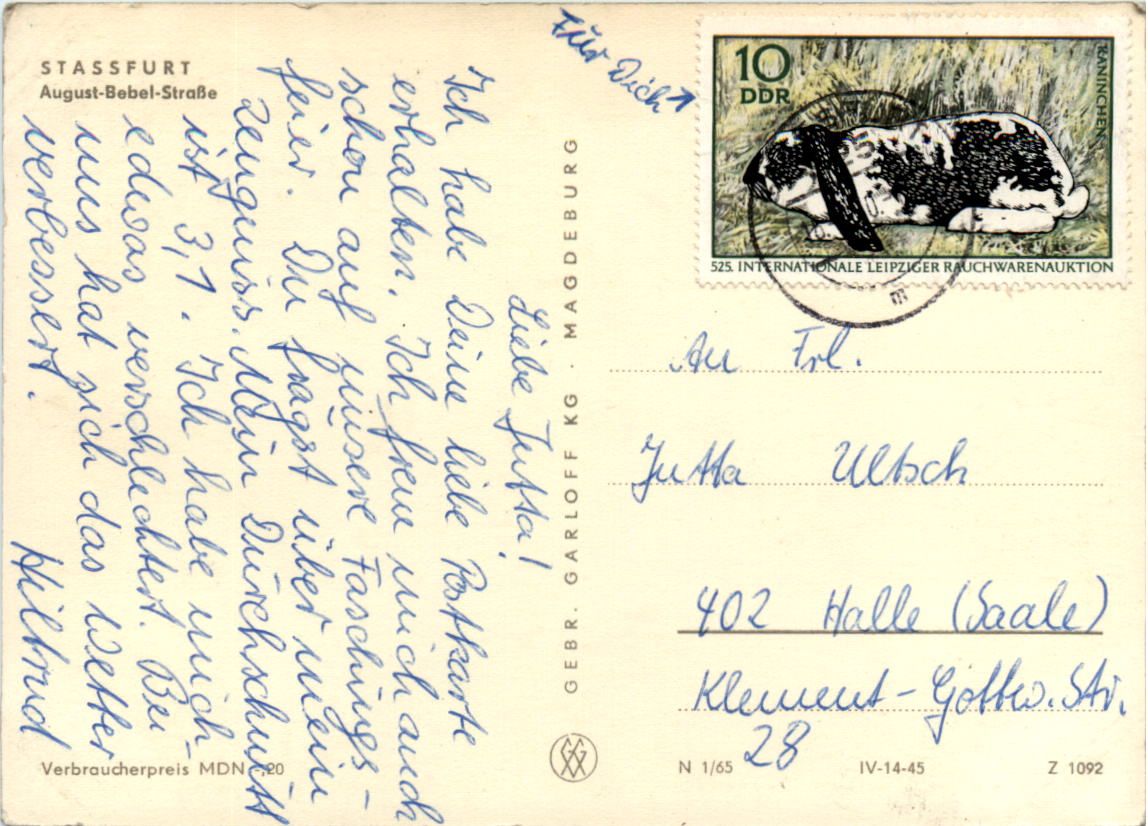 STASSFURT
August-Bebel-Straße
Liebe Jutta!
Ich habe Deine liebe Postkarte
erhalten. Ich freue mich auch
schon auf unsere Faschings-
feier. Du fragst über mein
Zeugniss. Mein Durchschnitt
ist 3,1. Ich habe mich
edwas verschlechtert. Bei
uns hat sich das Wetter
verbessert.
Hiltrud
Verbraucherpreis MDN -,20
GEBR. GARLOFF KG · MAGDEBURG
Für Dich
10
DDR
KANINCHEN
525. INTERNATIONALE LEIPZIGER RAUCHWARENAUKTION
m
An Frl.
Jutta Ultsch
402 Halle (Saale)
Klement-Gottw. Str.
28
N 1/65 IV-14-45 Z 1092